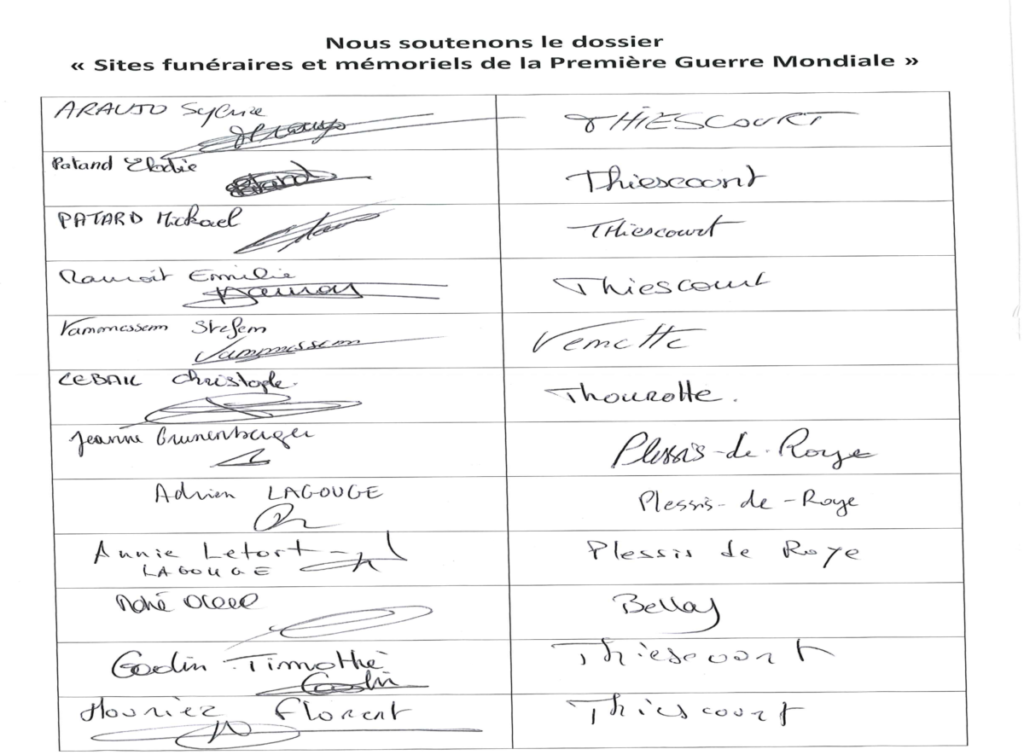 Nous soutenons le dossier
« Sites funéraires et mémoriels de la Première Guerre Mondiale »
ARAUJO Sylvie
THIESCOURT
Patard Elodie
Thiescourt
PATARD Mickael
Thiescourt
Emilie
Thiescourt
Vammessem Stefem
Vammessem
Vemette
LEBAIL Christophe.
Thourotte.
Jeanne Brunenberger
Plessis-de-Roye
Adrien LAGOUGE
Plessis-de-Roye
Annie Letort-
LAGOUGE
Plessis de Roye
Thiescourt
Godin Timothé
Godin
Thiescourt
Houriez Florent
Thiescourt